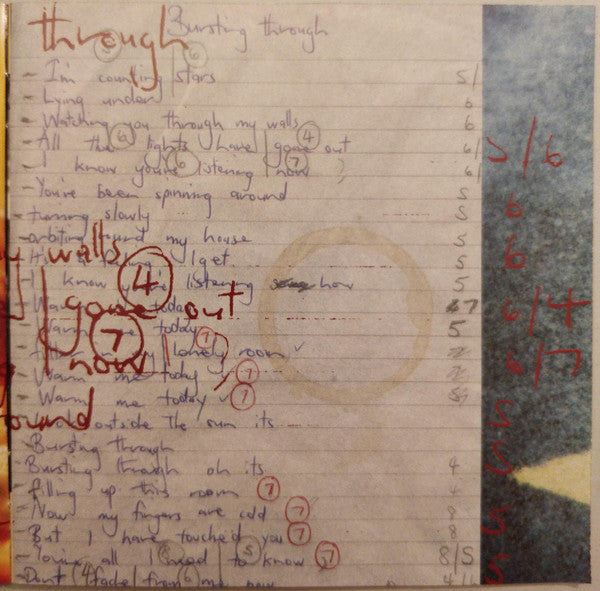 through
Bursting through
- I'm counting stars 5/
- Lying under 6
- Watching you through my walls 6
- All the lights have gone out 6/
- I know you're listening now 6/
- You've been spinning around 5
- turning slowly 5
- orbiting round my house 5
I get 5
- I know you're listening how 5
- Warm me today 7
- Warm me today 5
lonely room
- Warm me today
- Warm me today
outside the sun its
- Bursting through
- Bursting through oh its 4
- filling up this room
- Now my fingers are cold 8
- But I have touched you 8
- You're all I need to know 8/5
- Don't fade from me now
walls
4
gone out
7
now
5/6
6
6
6/4
6/7
5
5
5
5